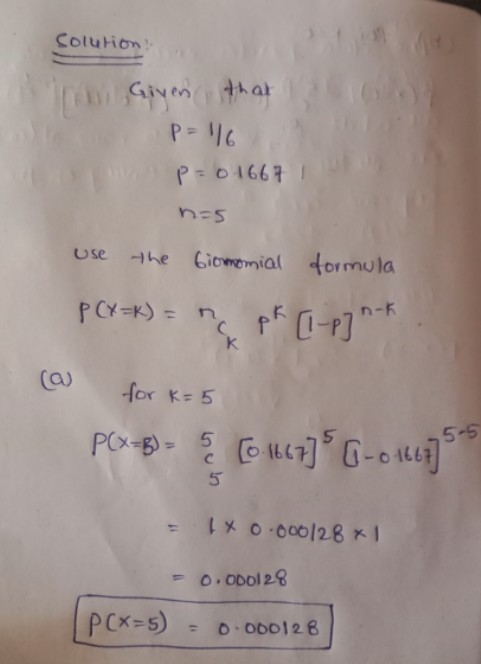 Solution:
Given that
P = 1/6
P = 0.1667
n=5
use the biomomial formula
P(X=K) = n C K P^K [1-P]^n-K
(a)
for K = 5
P(X=5) = 5 C 5 [0.1667]^5 [1-0.1667]^5-5
= 1 × 0.000128 × 1
= 0.000128
P(X=5) = 0.000128